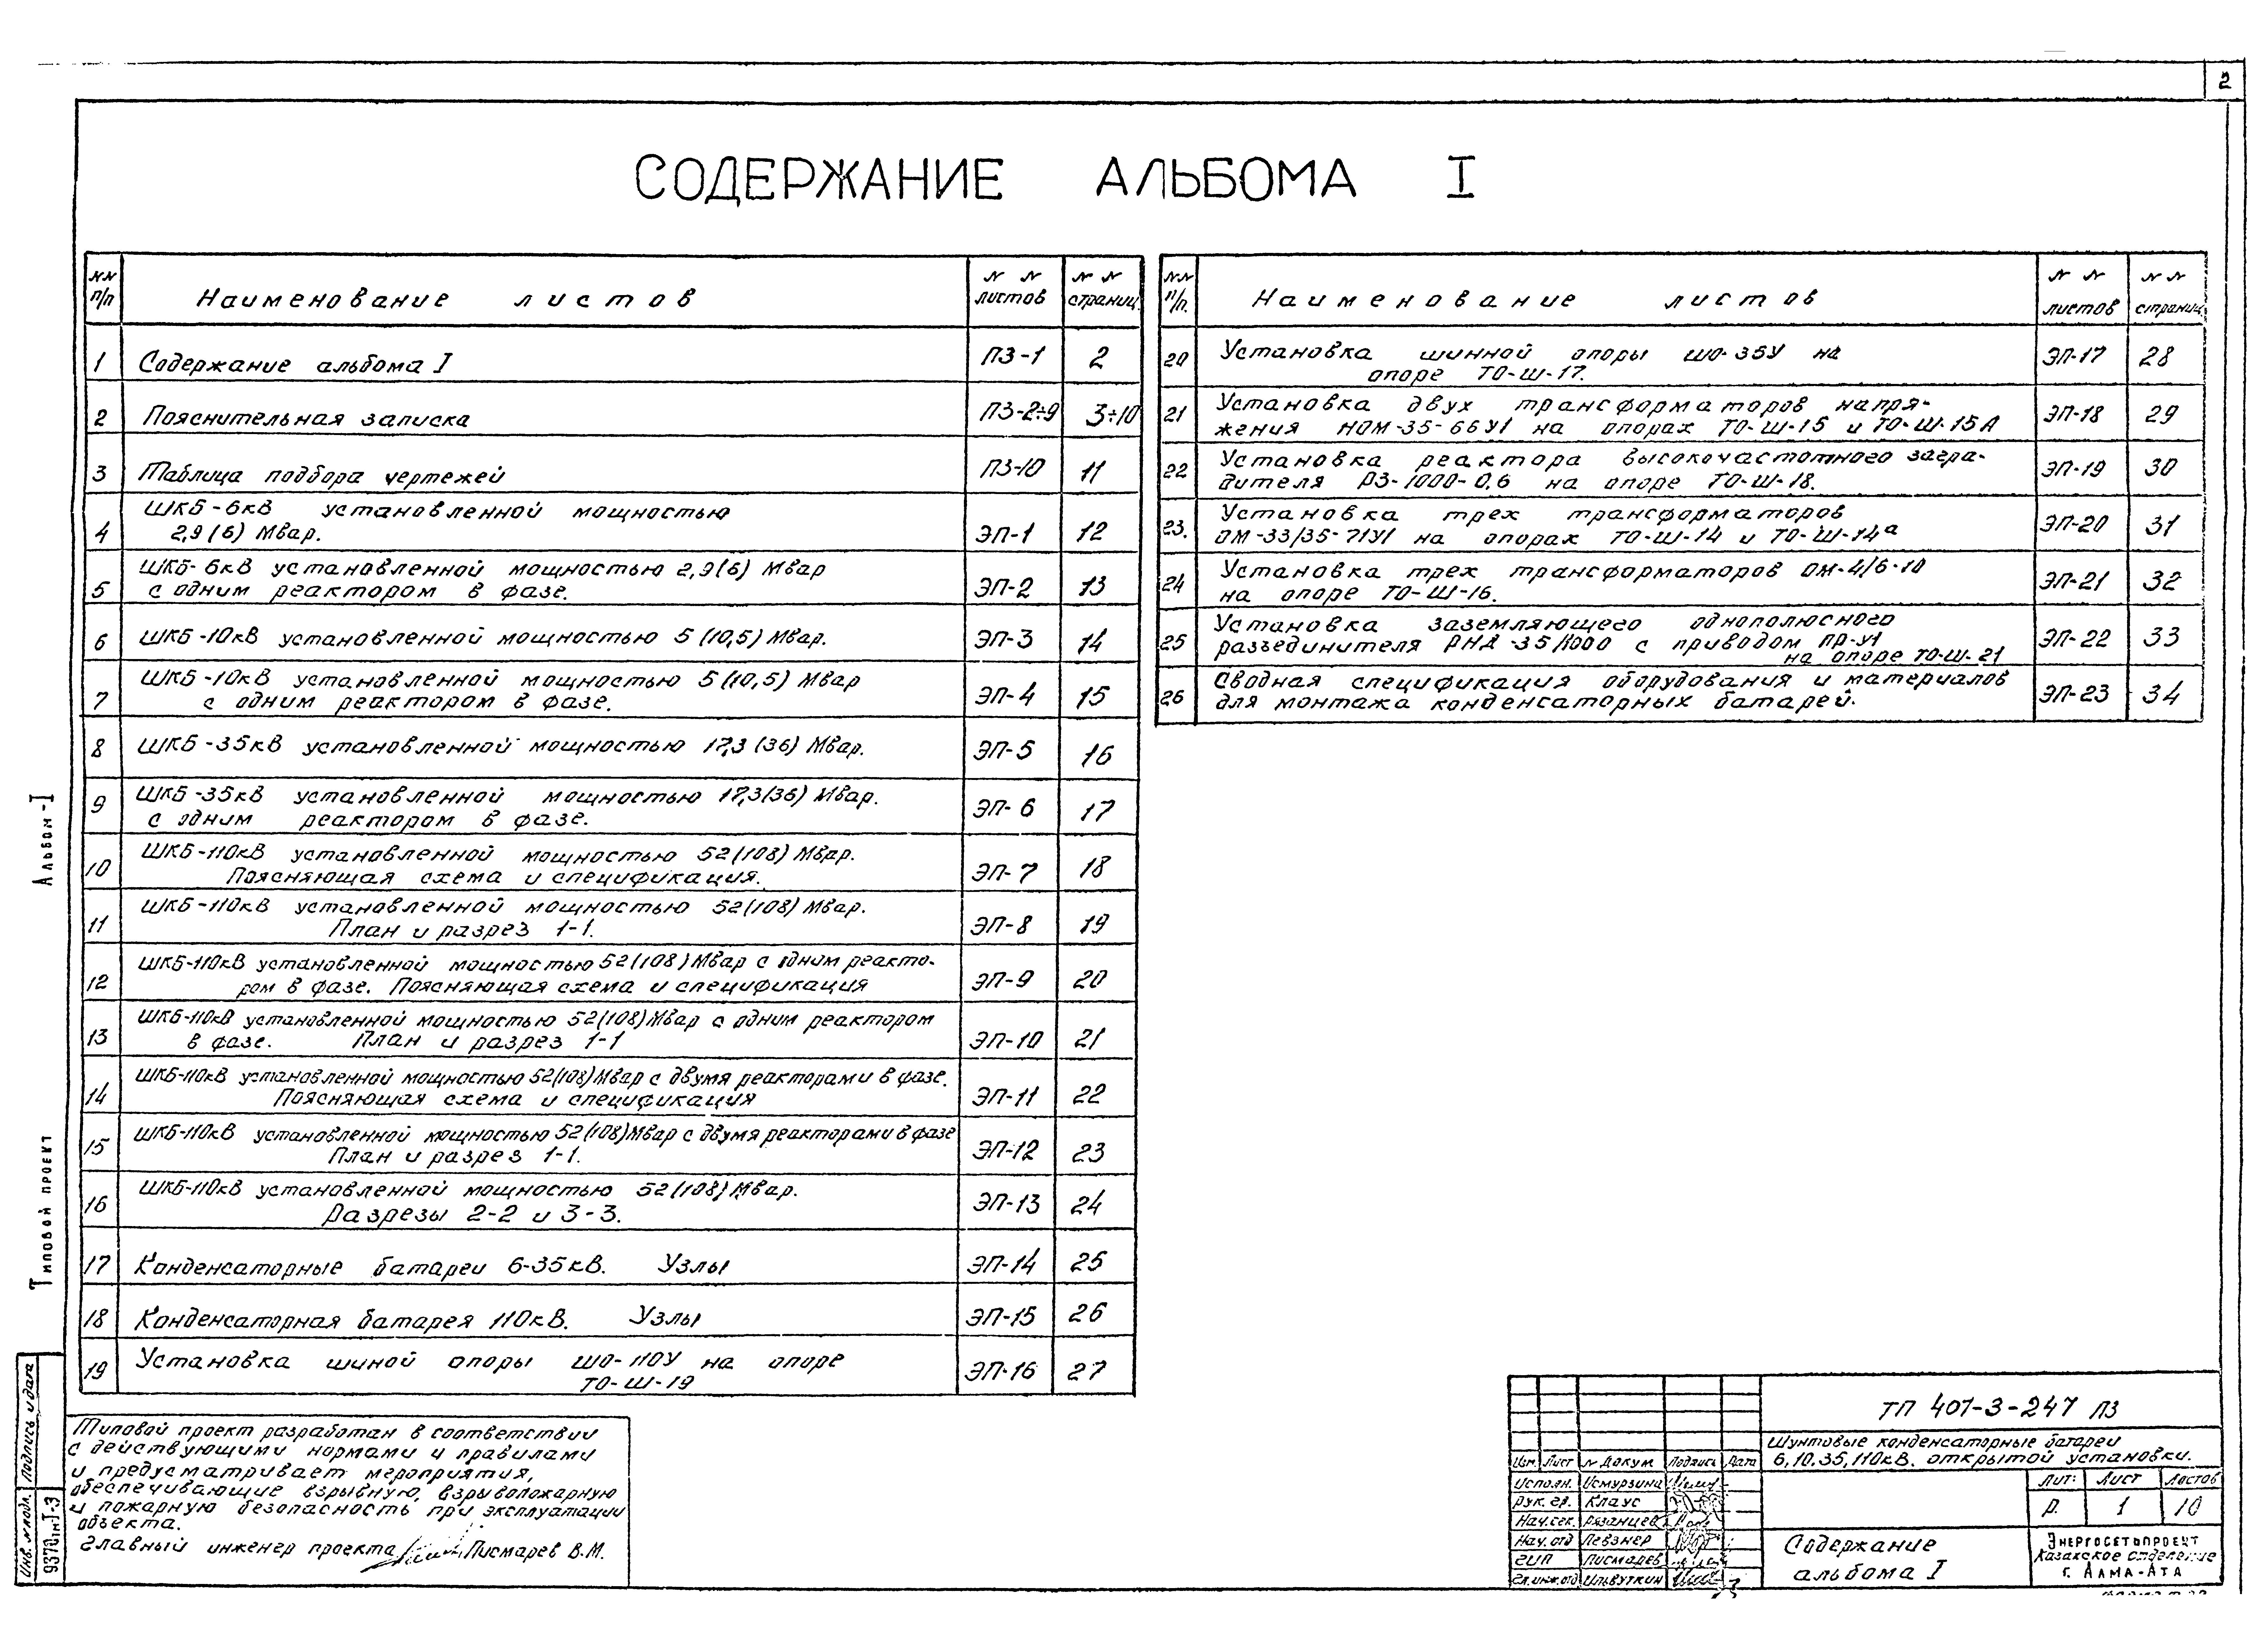 2
СОДЕРЖАНИЕ АЛЬБОМА I
NN п/п Наименование листов NN листов NN страниц.
1 Содержание альбома I ПЗ-1 2
2 Пояснительная записка ПЗ-2÷9 3÷10
3 Таблица подбора чертежей ПЗ-10 11
4 ШКБ-6кВ установленной мощностью
2,9(6) Мвар. ЭП-1 12
5 ШКБ-6кВ установленной мощностью 2,9(6) Мвар
с одним реактором в фазе. ЭП-2 13
6 ШКБ-10кВ установленной мощностью 5(10,5) Мвар. ЭП-3 14
7 ШКБ-10кВ установленной мощностью 5(10,5) Мвар
с одним реактором в фазе. ЭП-4 15
8 ШКБ-35кВ установленной мощностью 17,3(36) Мвар. ЭП-5 16
9 ШКБ-35кВ установленной мощностью 17,3(36) Мвар.
с одним реактором в фазе. ЭП-6 17
10 ШКБ-110кВ установленной мощностью 52(108) Мвар.
Поясняющая схема и спецификация. ЭП-7 18
11 ШКБ-110кВ установленной мощностью 52(108) Мвар.
План и разрез 1-1. ЭП-8 19
12 ШКБ-110кВ установленной мощностью 52(108) Мвар с одним реакто-
ром в фазе. Поясняющая схема и спецификация ЭП-9 20
13 ШКБ-110кВ установленной мощностью 52(108) Мвар с одним реактором
в фазе. План и разрез 1-1 ЭП-10 21
14 ШКБ-110кВ установленной мощностью 52(108) Мвар с двумя реакторами в фазе.
Поясняющая схема и спецификация ЭП-11 22
15 ШКБ-110кВ установленной мощностью 52(108) Мвар с двумя реакторами в фазе
План и разрез 1-1. ЭП-12 23
16 ШКБ-110кВ установленной мощностью 52(108) Мвар.
Разрезы 2-2 и 3-3. ЭП-13 24
17 Конденсаторные батареи 6-35кВ. Узлы ЭП-14 25
18 Конденсаторная батарея 110кВ. Узлы ЭП-15 26
19 Установка шиной опоры ШО-110У на опоре
ТО-Ш-19 ЭП-16 27
NN п/п. Наименование листов NN листов NN страниц.
20 Установка шинной опоры ШО-35У на
опоре ТО-Ш-17. ЭП-17 28
21 Установка двух трансформаторов напря-
жения НОМ-35-66У1 на опорах ТО-Ш-15 и ТО-Ш-15А ЭП-18 29
22 Установка реактора высокочастотного загра-
дителя РЗ-1000-0,6 на опоре ТО-Ш-18. ЭП-19 30
23. Установка трех трансформаторов
ОМ-33/35-71У1 на опорах ТО-Ш-14 и ТО-Ш-14а ЭП-20 31
24 Установка трех трансформаторов ОМ-4/6-10
на опоре ТО-Ш-16. ЭП-21 32
25 Установка заземляющего однополюсного
разъединителя РНД-35/1000 с приводом ПР-У1
на опоре ТО-Ш-21 ЭП-22 33
26 Сводная спецификация оборудования и материалов
для монтажа конденсаторных батарей. ЭП-23 34
Альбом-I
Типовой проект
Подпись и дата
Инв. N подл.
9370тм-I-3
Типовой проект разработан в соответствии
с действующими нормами и правилами
и предусматривает мероприятия,
обеспечивающие взрывную, взрывопожарную
и пожарную безопасность при эксплуатации
объекта.
Главный инженер проекта Писмарев В.М.
ТП 407-3-247 ПЗ
Шунтовые конденсаторные батареи
6,10,35,110кВ. открытой установки.
Изм. Лист N докум Подпись Дата
Исполн. Исмурзина
Рук. гр. Клаус
Нач. сек. Рязанцев
Нач. отд Певзнер
ГИП Писмарев
Гл. инж. отд Ильвуткин
Лит: Лист Листов
Р. 1 10
Содержание
альбома I
Энергосетьпроект
Казахское отделение
г. Алма-Ата